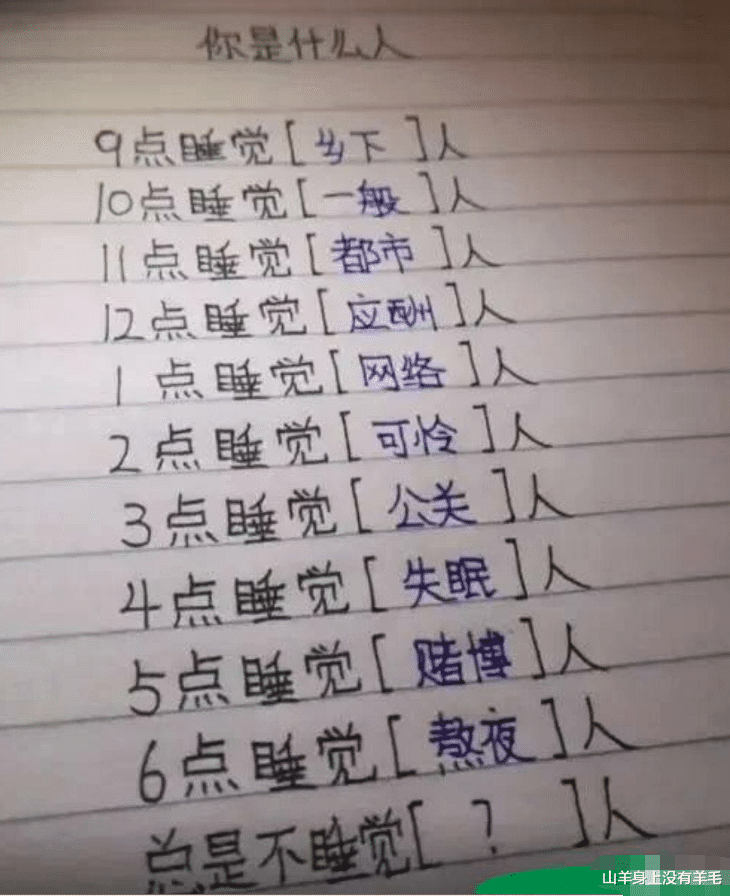 你是什么人
9点睡觉[乡下]人
10点睡觉[一般]人
11点睡觉[都市]人
12点睡觉[应酬]人
1点睡觉[网络]人
2点睡觉[可怜]人
3点睡觉[公关]人
4点睡觉[失眠]人
5点睡觉[赌博]人
6点睡觉[熬夜]人
总是不睡觉[?]人
山羊身上没有羊毛